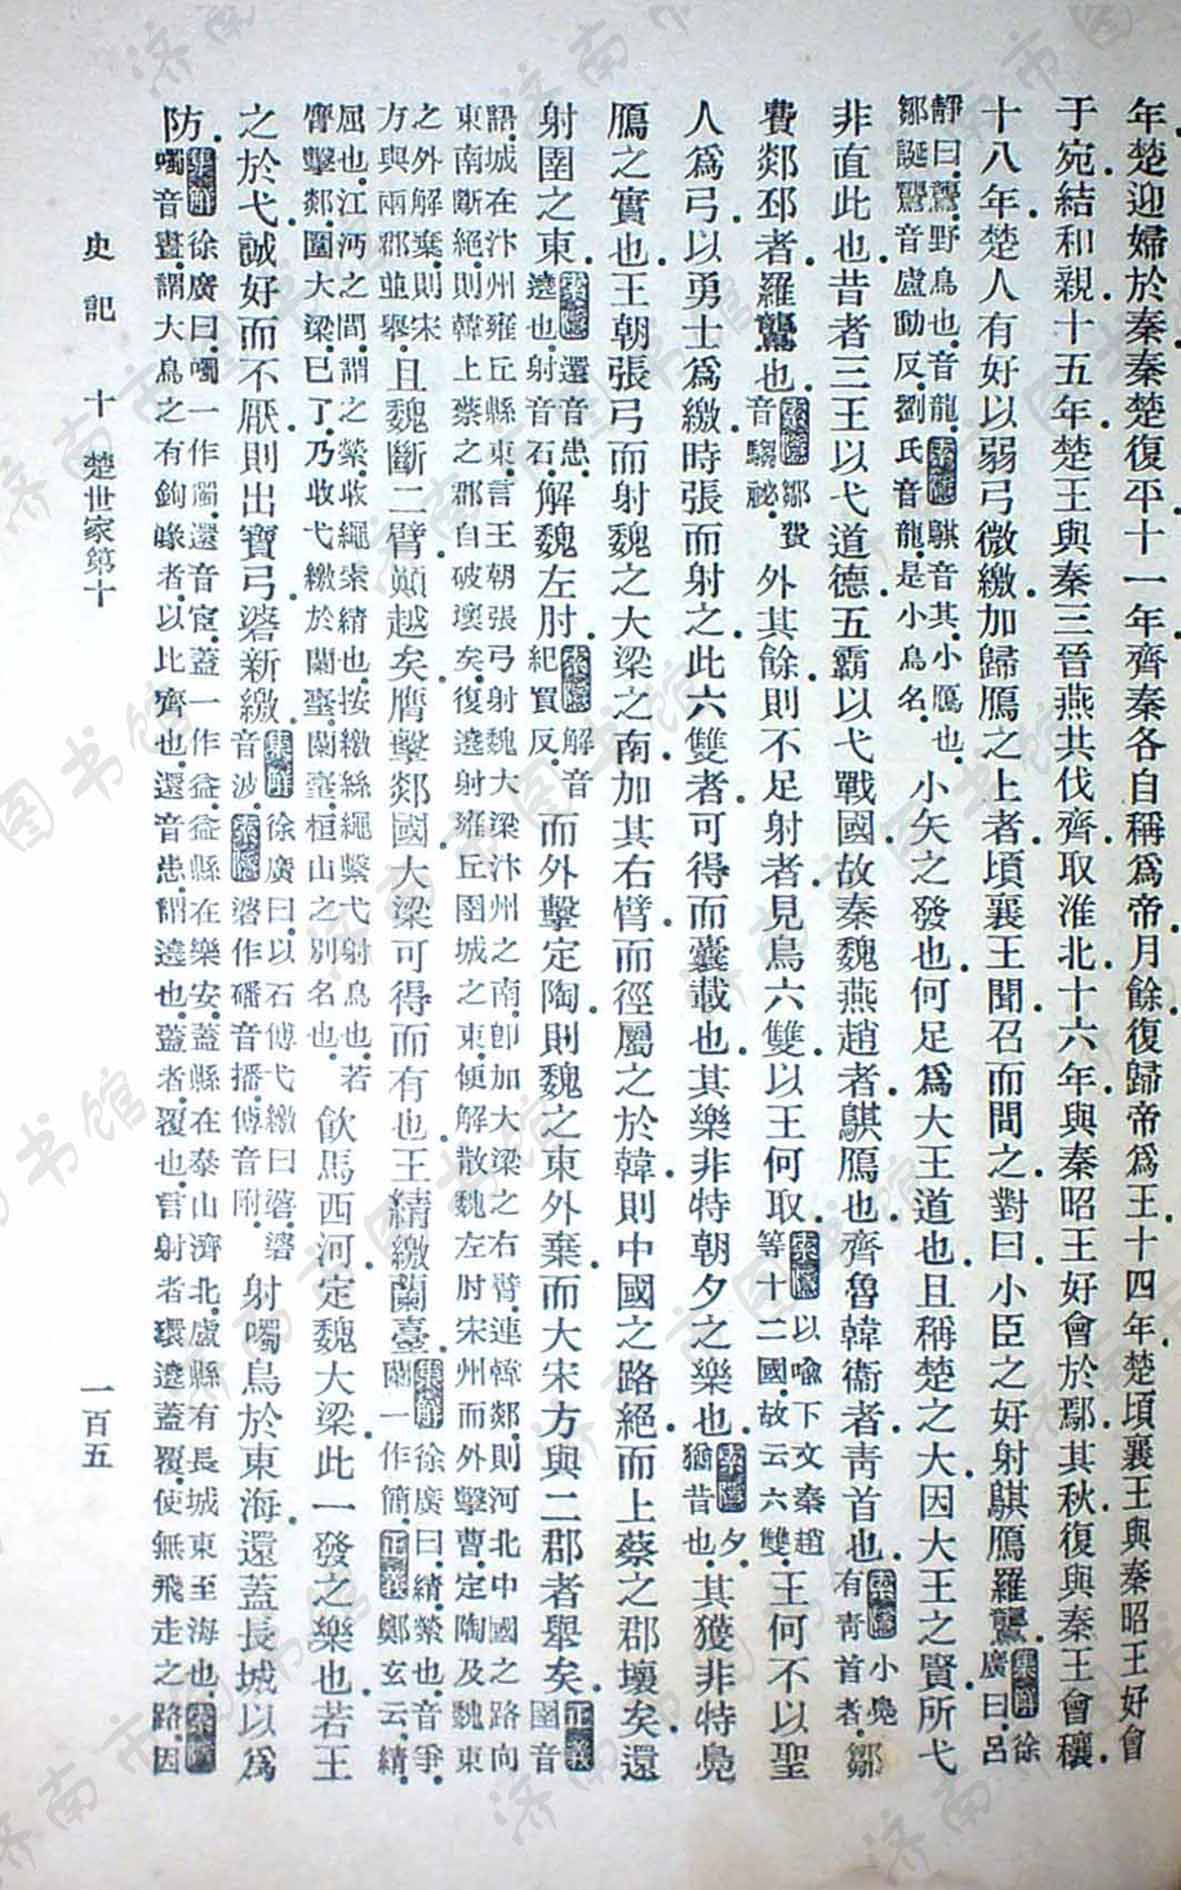 年。楚迎婦於秦。秦楚復平。十一年。齊秦各自稱爲帝。月餘。復歸帝爲王。十四年。楚頃襄王與秦昭王好會
于宛。結和親。十五年。楚王與秦三晉燕共伐齊。取淮北。十六年。與秦昭王好會於鄢。其秋。復與秦王會穰。
十八年。楚人有好以弱弓微繳。加歸鴈之上者。頃襄王聞。召而問之。對曰。小臣之好射鶀鴈羅鸗。集解徐廣曰。呂
靜曰。鸗。野鳥也。音龍。索隱鶀音其。小鴈也。鄒誕鸗音盧動反。劉氏音龍。是小鳥名。小矢之發也。何足爲大王道也。且稱楚之大。因大王之賢。所弋
非直此也。昔者三王以弋道德。五霸以弋戰國。故秦魏燕趙者。鶀鴈也。齊魯韓衞者。青首也。索隱小鳧有青首者。鄒
費郯邳者。羅鸗也。索隱鄒費音騶祕。外其餘則不足射者。見鳥六雙。以王何取。索隱以喻下文秦趙等十二國。故云六雙。王何不以聖
人爲弓。以勇士爲繳。時張而射之。此六雙者。可得而囊載也。其樂非特朝夕之樂也。索隱夕猶昔也。其獲非特鳧
鴈之實也。王朝張弓而射魏之大梁之南。加其右臂。而徑屬之於韓。則中國之路絕。而上蔡之郡壞矣。還
射圉之東。索隱還音患。遶也。射音石。解魏左肘。索隱解音紀買反。而外擊定陶。則魏之東外棄。而大宋方與二郡者舉矣。正義圉音
語。城在汴州雍丘縣東。言王朝張弓射魏大梁汴州之南。卽加大梁之右臂。連韓郯。則河北中國之路向東南斷絕。則韓上蔡之郡自破壞矣。復遶射雍丘圉城之東。便解散魏左肘宋州。而外擊曹。定陶及魏東
之外解棄。則宋方與兩郡並舉。且魏斷二臂。顚越矣。膺擊郯國。大梁可得而有也。王綪繳蘭臺。集解徐廣曰。綪。縈也。音爭。蘭一作簡。正義鄭玄云。綪。
屈也。江沔之間。謂之縈。收繩索綪也。按。繳。絲繩繫弋射鳥也。若膺擊郯。圍大梁已了。乃收弋繳於蘭臺。蘭臺。桓山之別名也。飲馬西河。定魏大梁。此一發之樂也。若王
之於弋。誠好而不厭。則出寶弓。碆新繳。集解徐廣曰。以石傅弋繳曰碆。碆音波。索隱碆作磻。音播。傅音附。射噣鳥於東海。還蓋長城以爲
防。集解徐廣曰。噣一作獨。還音宦。蓋一作益。益縣在樂安。蓋縣在泰山。濟北盧縣有長城。東至海也。索隱噣音晝。謂大鳥之有鉤喙者。以比齊也。還音患。謂遶也。蓋者。覆也。言射者環遶蓋覆。使無飛走之路。因
史記 十 楚世家第十 一百五